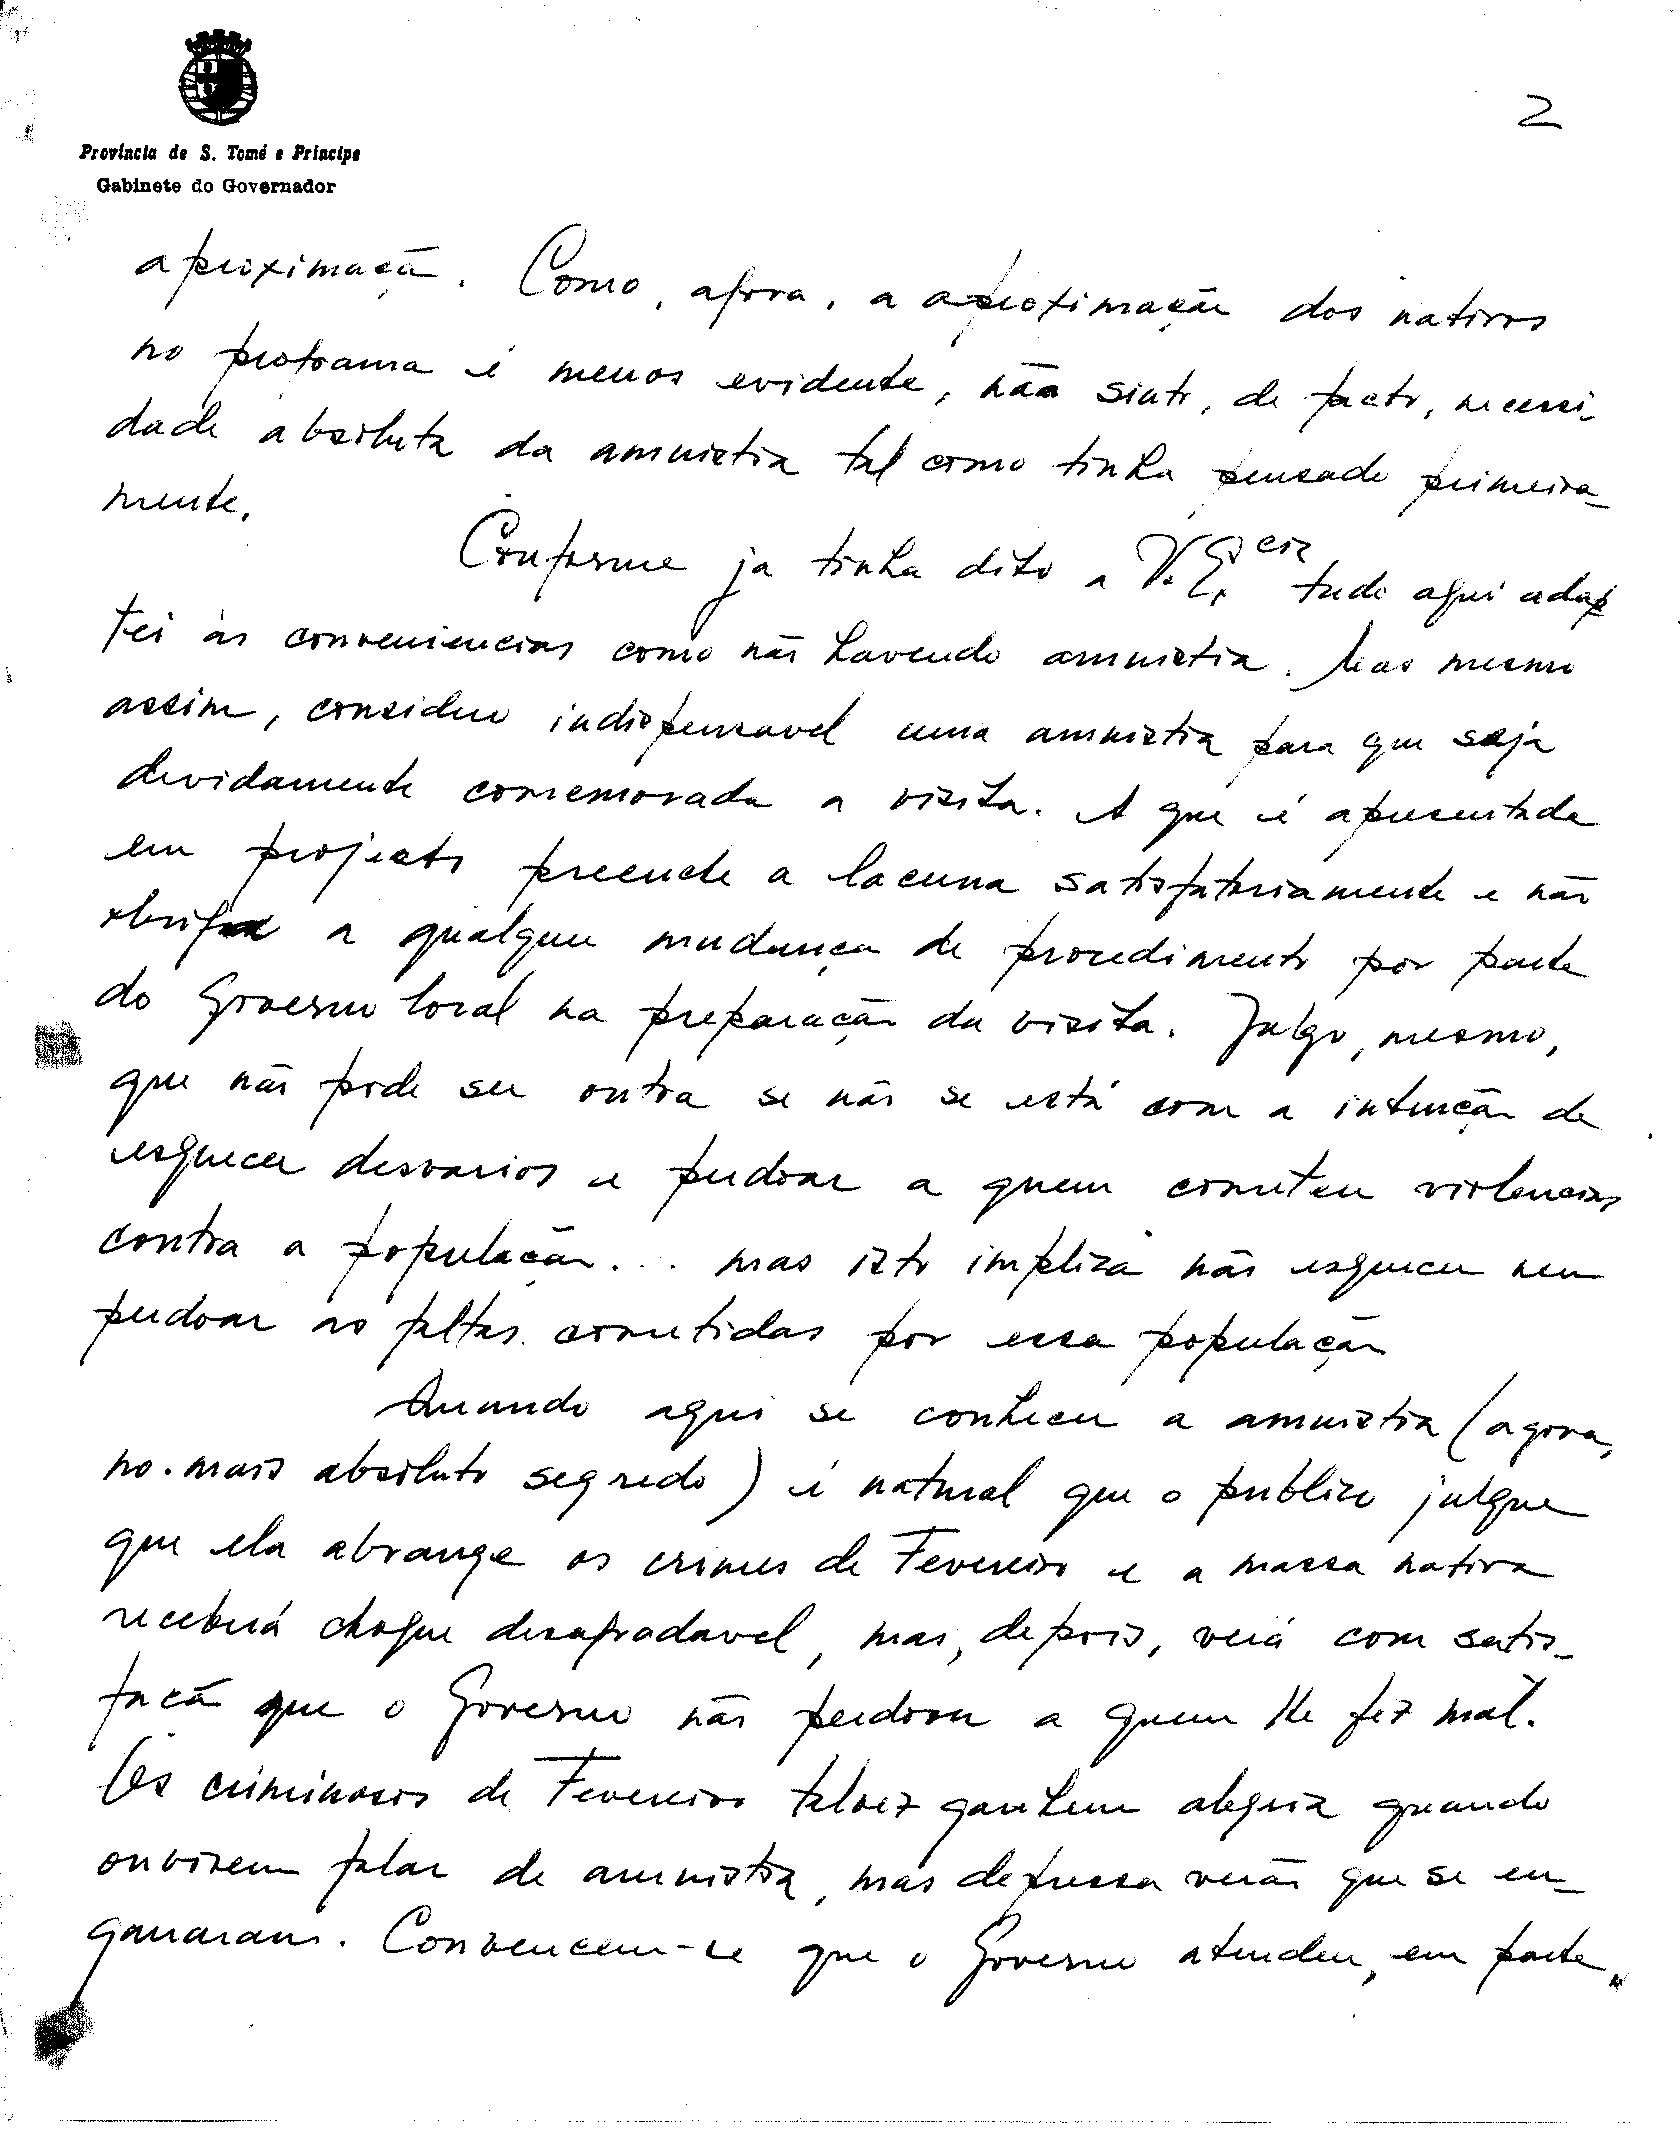 2
Província de S. Tomé e Príncipe
Gabinete do Governador
aproximaçã. Como, agora, a aproximação dos nativos
no programa é menos evidente, não sinto, de facto, necessi-
dade absoluta da amnistia tal como tinha pensado primeira-
mente.
Conforme ja tinha dito a V. Ex.cia tudo aqui adap
tei às conveniencias como não havendo amnistia. Mas mesmo
assim, considero indispensavel uma amnistia para que seja
devidamente comemorada a visita. A que é apresentada
em projecto preenche a lacuna satisfatoriamente e não
obriga a qualquer mudança de procedimento por parte
do Governo local na preparação da visita. Julgo, mesmo,
que não pode ser outra se não se está com a intenção de
esquecer desvarios e perdoar a quem cometeu violencias
contra a população... mas isto implica não esquecer nem
perdoar as faltas cometidas por essa população
Quando aqui se conhecer a amnistia (agora,
no mais absoluto segredo) é natural que o publico julgue
que ela abrange os crimes de Fevereiro e a massa nativa
receberá choque desagradavel, mas, depois, verá com satis-
facã que o Governo não perdoou a quem lhe fez mal.
Os criminosos de Fevereiro talvez ganhem alegria quando
ouvirem falar de amnistia, mas depressa verão que se en-
ganaram. Convencem-se que o Governo atendeu, em parte,